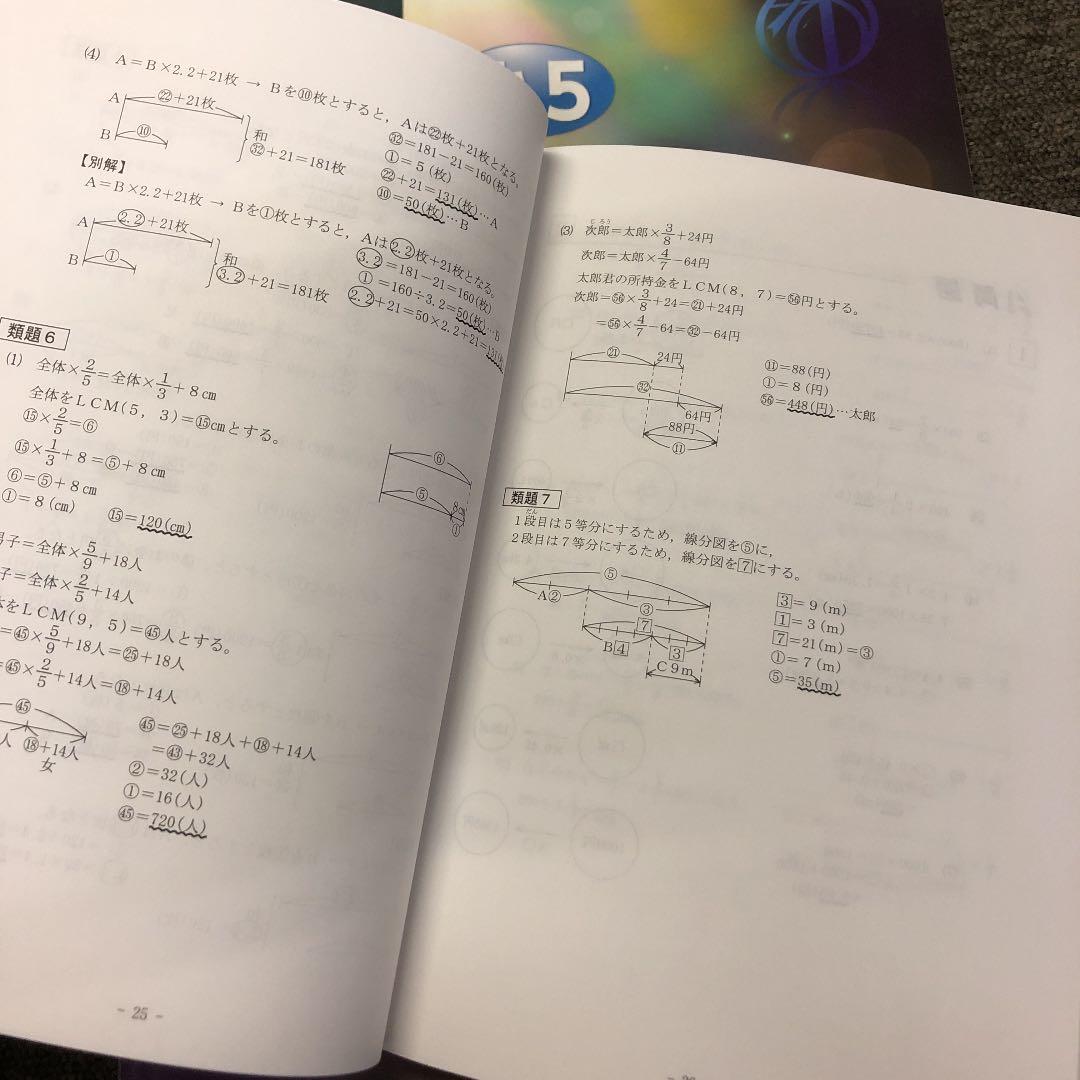 ⑷ A＝B×2.2＋21枚 → Bを⑩枚とすると，Aは㉒枚＋21枚となる。
A ㉒＋21枚
B ⑩
和
㉜＋21＝181枚
㉜＝181－21＝160(枚)
①＝5(枚)
㉒＋21＝131(枚)…A
⑩＝50(枚)…B
【別解】
A＝B×2.2＋21枚 → Bを①枚とすると，Aは2.2枚＋21枚となる。
A 2.2＋21枚
B ①
和
3.2＋21＝181枚
3.2＝181－21＝160(枚)
①＝160÷3.2＝50(枚)…B
2.2＋21＝50×2.2＋21＝131(枚)
類題6
⑴ 全体×2/5＝全体×1/3＋8cm
全体をLCM(5，3)＝⑮cmとする。
⑮×2/5＝⑥
⑮×1/3＋8＝⑤＋8cm
⑥＝⑤＋8cm
①＝8(cm)
⑮＝120(cm)
⑥
⑤
8cm
①
子＝全体×5/9＋18人
子＝全体×2/5＋14人
をLCM(9，5)＝㊺人とする。
＝㊺×5/9＋18人＝㉕＋18人
＝㊺×2/5＋14人＝⑱＋14人
㊺
人 ⑱＋14人
女
㊺＝㉕＋18人＋⑱＋14人
＝㊸＋32人
②＝32(人)
①＝16(人)
㊺＝720(人)
- 25 -
5
じろう
⑶ 次郎＝太郎×3/8＋24円
次郎＝太郎×4/7－64円
太郎君の所持金をLCM(8，7)＝(56)円とする。
次郎＝(56)×3/8＋24＝㉑＋24円
＝(56)×4/7－64＝㉜－64円
㉑ 24円
㉜
64円
88円
⑪
⑪＝88(円)
①＝8(円)
(56)＝448(円)…太郎
類題7
だん
1段目は5等分にするため，線分図を⑤に，
2段目は7等分にするため，線分図を[7]にする。
⑤
A② ③
[7]
B[4] [3]
C9m
[3]＝9(m)
[1]＝3(m)
[7]＝21(m)＝③
①＝7(m)
⑤＝35(m)